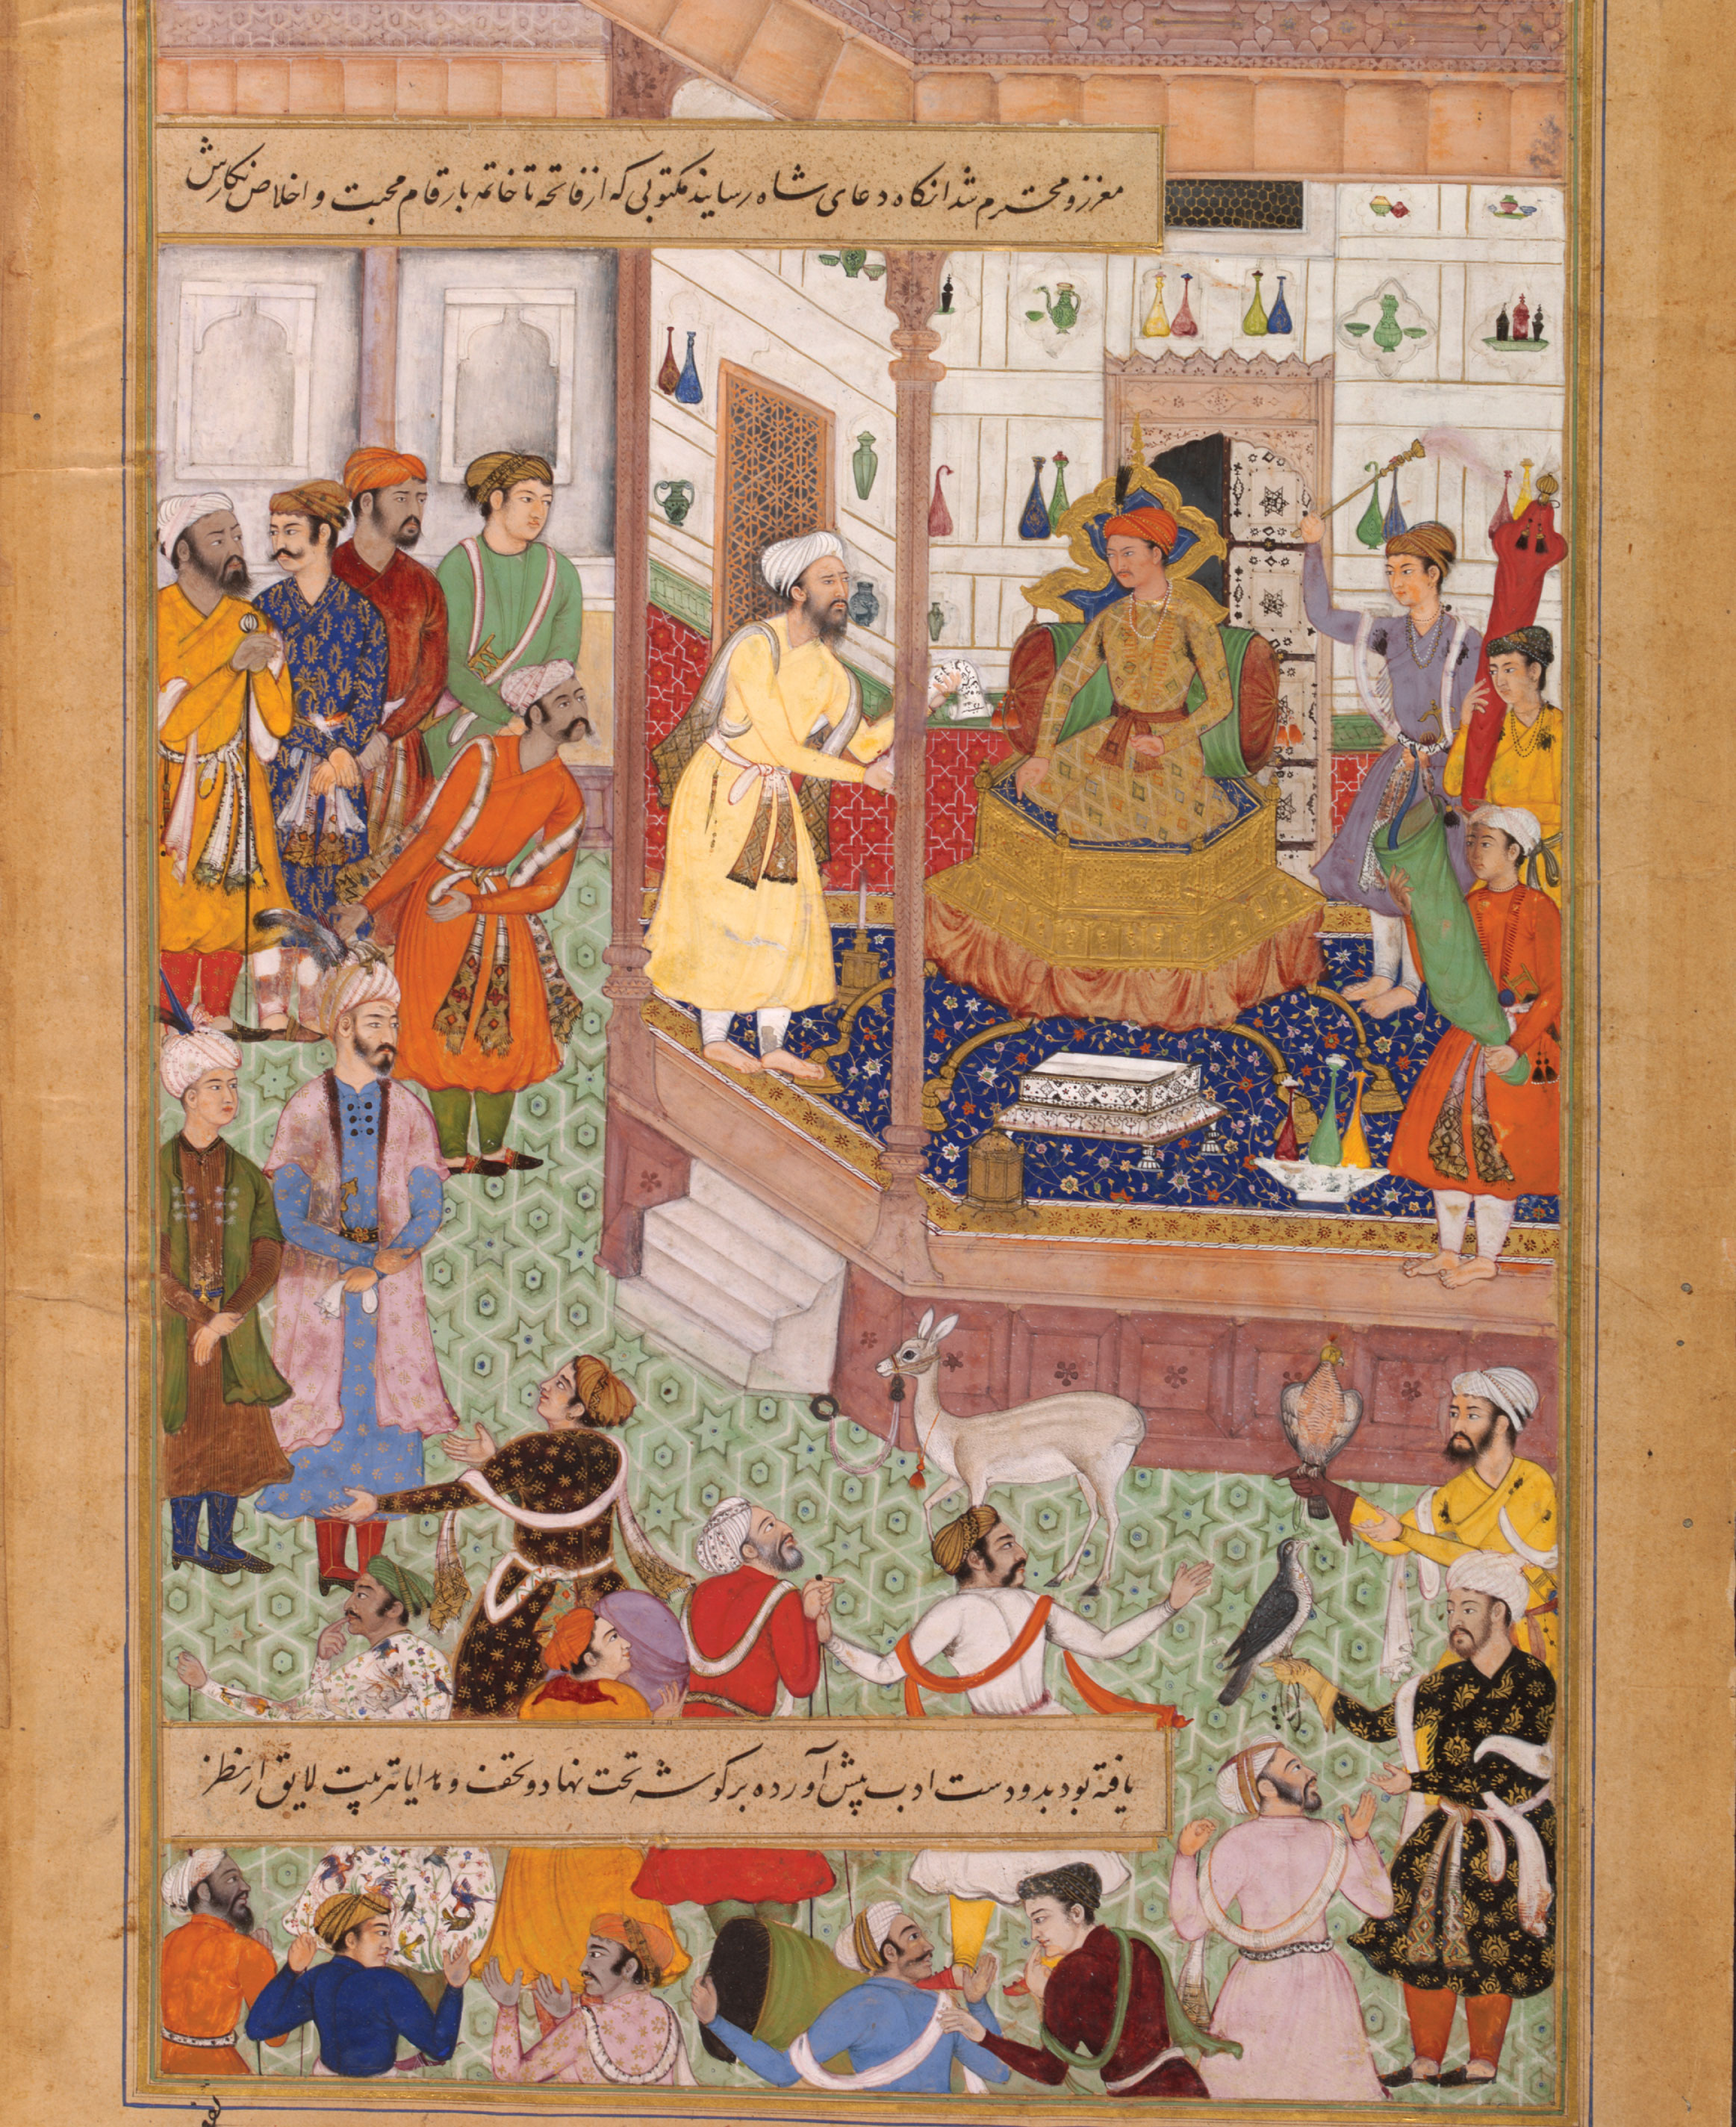 معزز و محترم شد انکاه دعای شاه رسانید مکتوبی که از فاتحه تا خاتمه بارقام محبت و اخلاص نکارش
یافته بود بدو دست ادب پیش آورده بر کوشه تخت نهاد و تحف و هدایا بترتیب لایق از نظر